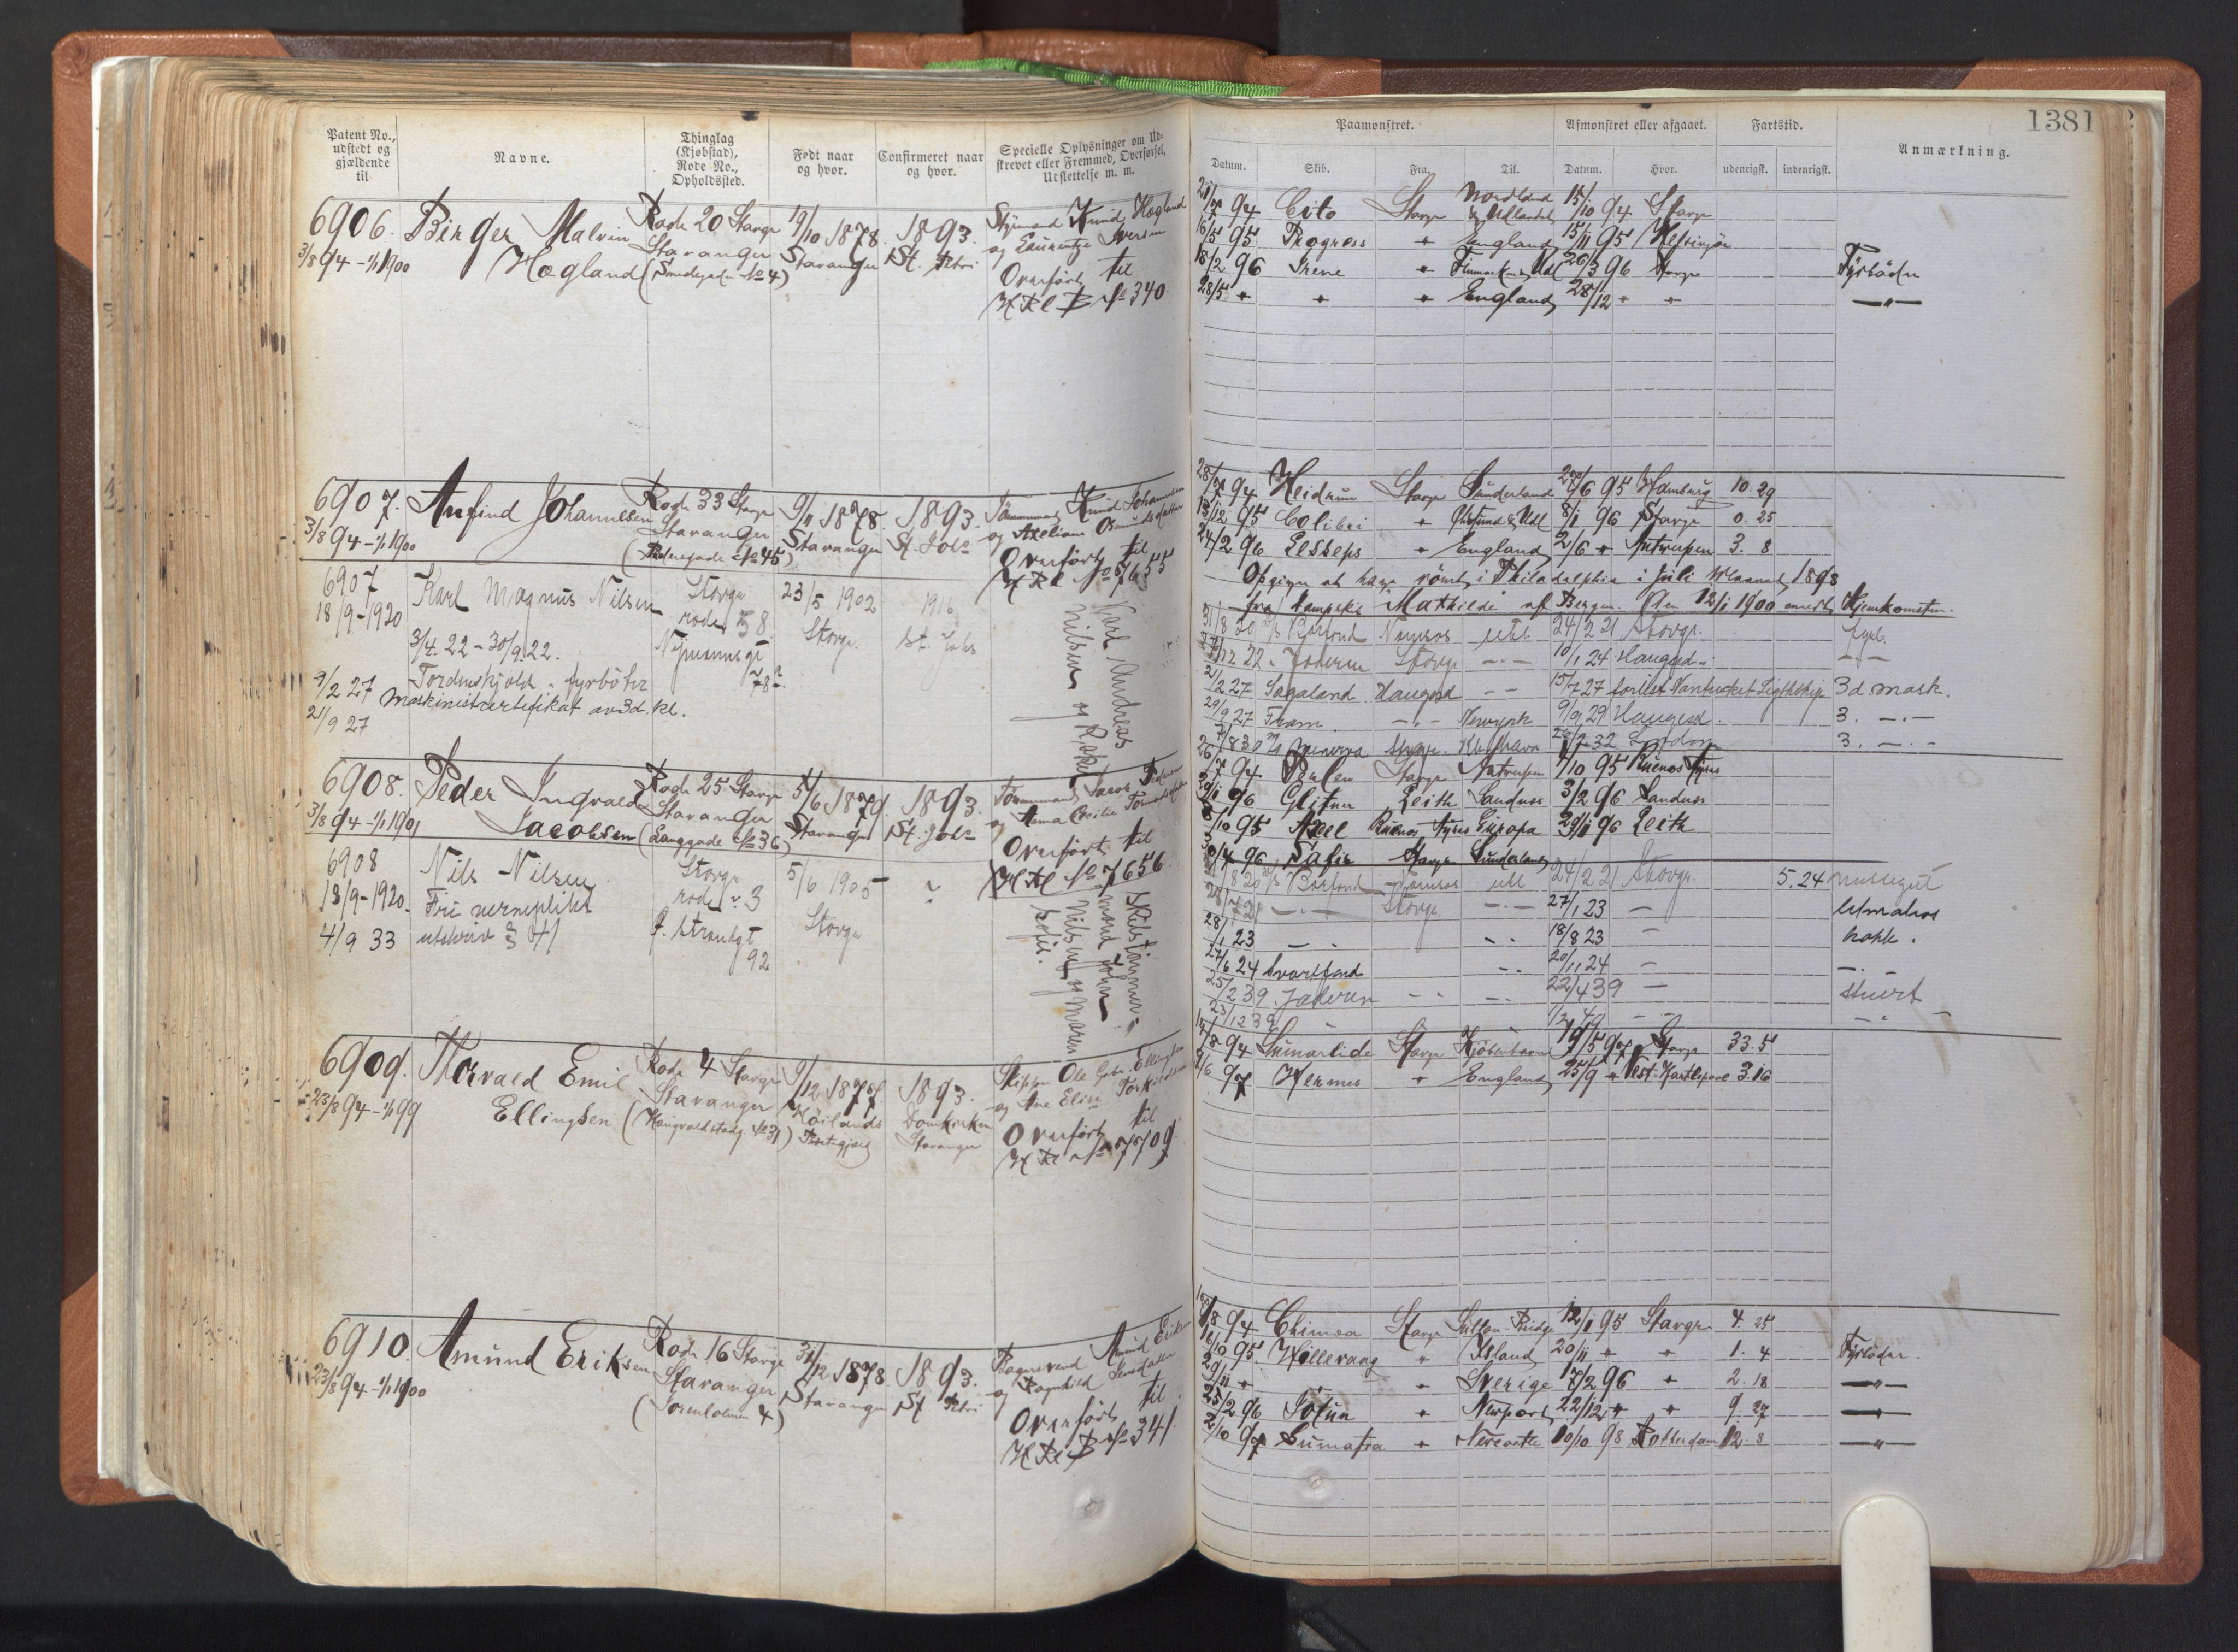 1381
Patent No., udstedt og gjældende til
Navne.
Thinglag (Kjøbstad), Rode No., Opholdssted.
Født naar og hvor.
Confirmeret naar og hvor.
Specielle Oplysninger om Udskrevet eller Fremmed, Overførsel, Udslettelse m. m.
Paamønstret.
Afmønstret eller afgaaet.
Fartstid.
Anmærkning.
Datum.
Skib.
Fra.
Til.
Datum.
Hvor.
udenrigsk.
indenrigsk.
6906. Birger Malvin Rode 20 Stavgr 19/10 1878. 1893. Styrmand Knud Høgland
3/8 94 - 1/1 1900 Høgland Stavanger Stavanger St. Petri og Laurentze Iversen
(Smedegade No 4) Overført til
H Rl B No 340
94 Cito Stavgr Nordland & Udlandet 15/10 94 Stavgr
16/5 95 Progress " England 15/11 95 Helsingør
18/2 96 Irene " Finmarken & Udl 26/3 96 Stavgr Fyrbøder
28/5 " " " England 28/12 " " —"—
6907. Anfind Johannesen Rode 33 Stavgr 9/11 1878. 1893. Tømmermand Knud Johannesen
3/8 94 - 1/1 1900 Stavanger Stavanger St. Johs og Axeliane Osmundsdatter
(Pedersgade No 45) Overført til
H Rl No 7655
28/7 94 Heidrun Stavgr Sunderland 27/6 95 Hamburg 10. 29
13/12 95 Colibri " Chrsund & Udl 8/1 96 Stavgr 0. 25
24/2 96 Lesseps " England 2/6 " Antwerpen 3. 8
Opgiver at have rømt i Philadelphia i Juli Maaned 1898
fra Dampskib Mathilde af Bergen. Den 12/1 1900 Hjemkomsten.
6907 Karl Magnus Nilsen Stavgr 23/5 1902 1916
18/9 - 1920 rode 58 Stavgr. St. Johs
3/4. 22 - 30/9. 22.
Tordenskjold - fyrbøter
9/2 27 Maskinistcertifikat av 3d. kl.
21/9 27
Karl Andreas Nilsen og Rakel
31/8 20 Borfond Namsos utl. 24/2 21 Stavgr. fyrb.
22 Jæderen Stavgr —"— 10/1 24 Haugesd. —"—
2/2 27 Sagaland Haugesd —"— 15/7 27 forlist Nantucket Ligthship 3d mask.
29/9 27 Fram —"— Newyork 9/9 29 Haugesd. 3. —"—
830 Minerva London 3. —"—
6908. Peder Ingvald Rode 25 Stavgr 5/6 1879. 1893. Tømmermand Jacob Pedersen
3/8 94 - 1/1 1901 Jacobsen Stavanger Stavanger St. Johs og Anna Cecilie
(Langgade No 36) Overført til
H Rl No 7656
26/7 94 Stavgr Antwerpen 7/10 95 Buenos Ayres
29/1 96 Glitner Leith Sandnes 3/2 96 Sandnes
8/10 95 Axel Buenos Ayres Europa 29/1 96 Leith
96 Safir Stavgr Sunderland
6908 Nils Nilsen Stavgr 5/6 1905
18/9 - 1920. Fri verneplikt rode 3 Stavgr
4/9 33 utskriv
92
Skibstømmermand John Nilsen og Maren Sofie.
820 Borfond Namsos utl 24/2 21 Stavgr. 5. 24 messegut
28/7 21 —"— Stavgr —"— 27/1 23 — letmatros
28/1 23 —"— —"— 18/8 23 — kokk.
27/6 24 Svartfond —"— 20/11 24 — —"—
25/2 39. Jæderen —"— 22/4 39 — stuert
23/12 39 —"—
6909. Thorvald Emil Rode 4 Stavgr 9/12 1877 1893. Skipper Ole Gabr. Ellingsen
23/8 94 - 1/1 99 Ellingsen Stavanger Høilands Domkirken og Ane Elise
(Kongvaldstadg. No 31) Præstegjæld Stavanger Overført til
H Rl No 7709.
14/8 94 Sumarlide Stavgr Kjøbenhavn 19/5 97 Stavgr 33. 5
9/6 97 Hermes " England 25/9 " Vest-Hartlepool 3. 16
6910. Amund Eriksen Rode 16 Stavgr 31/12 1878 1893. Amund Eriksen
23/8 94 - 1/1 1900 Stavanger Stavanger St. Petri og Ragnhild
4) Overført til
H Rl B No 341.
94 Chimæra Stavgr Sutton-Bridge 12/1 95 Stavgr 4. 25
16/10 95 Hillevaag " Island 20/11 " " 1. 4 Fyrbøder.
20/11 " " " Sverige 17/2 96 " 2. 18 —"—
25/2 96 Jotun " Newport 22/12 " " 9. 27 —"—
2/10 97 Sumatra " Newcastle 10/10 98 Rotterdam 12. 8 —"—